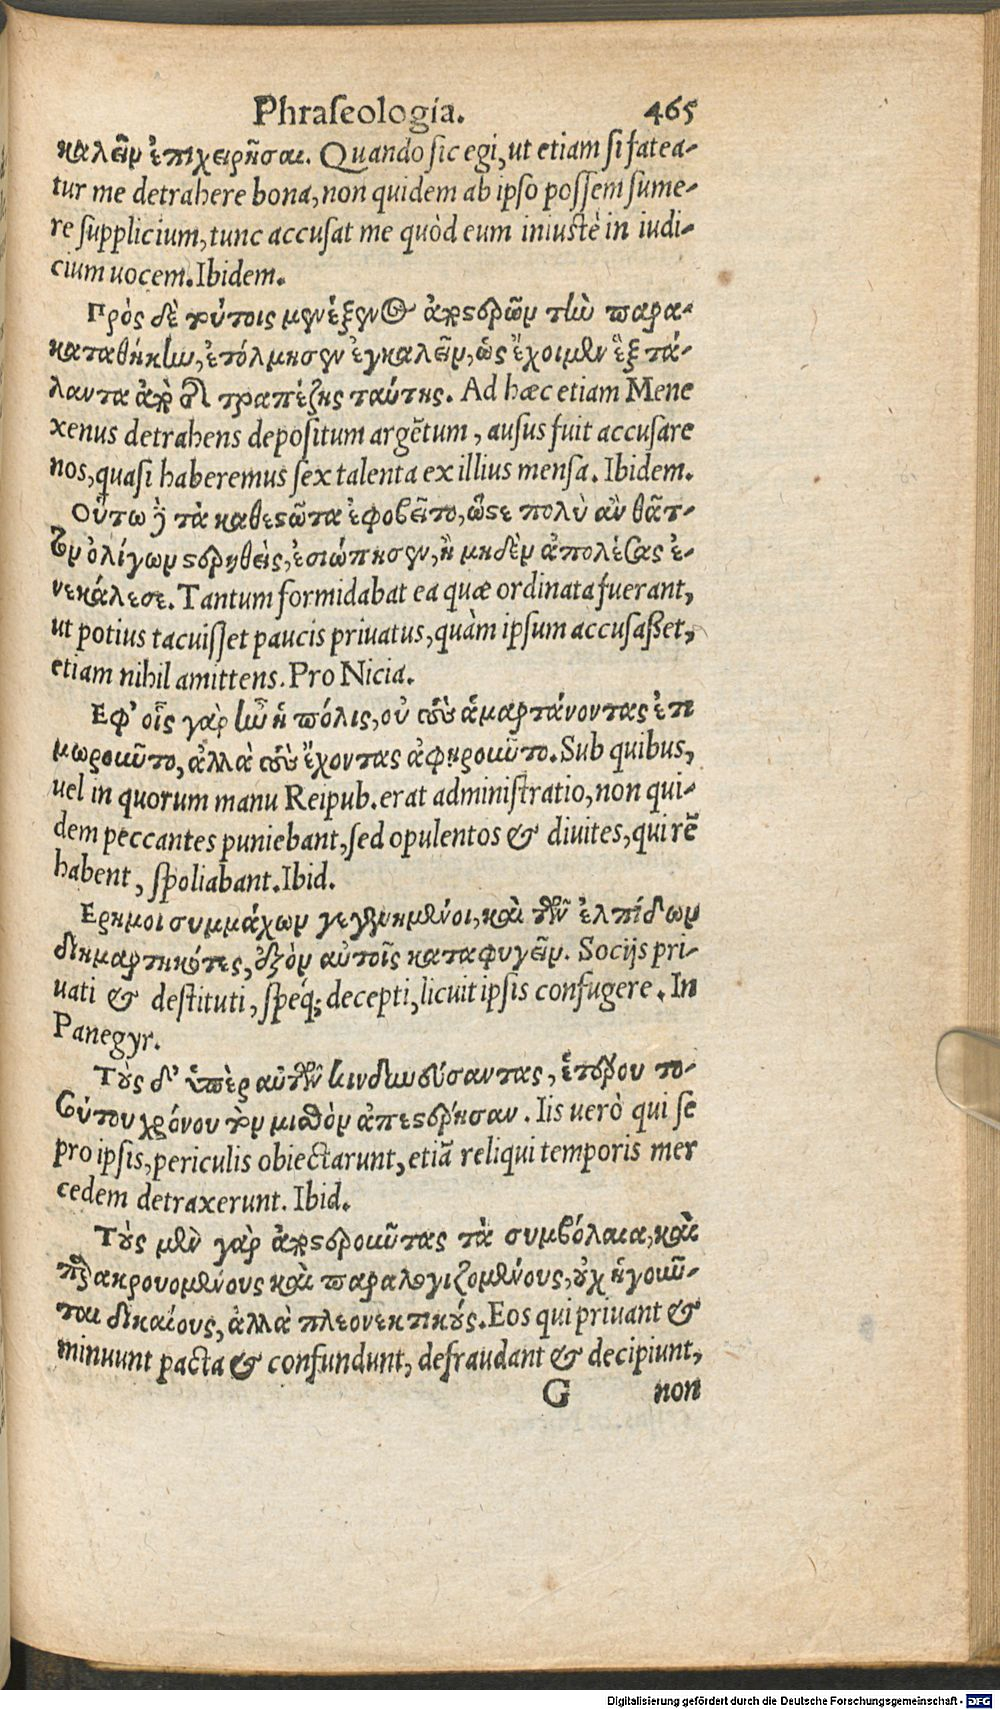 Phraseologia. 465
καλεῖν ἐπιχειρῆσαι. Quando sic egi, ut etiam si fatea-
tur me detrahere bona, non quidem ab ipso possem sume-
re supplicium, tunc accusat me quòd eum iniustè in iudi-
cium uocem. Ibidem.
Πρὸς δὲ τούτοις μενέξενος ἀποστερῶν τὴν παρα-
καταθήκην, ἐτόλμησεν ἐγκαλεῖν, ὡς ἔχοιμεν ἓξ τά-
λαντα ἀπὸ τῆς τραπέζης ταύτης. Ad hæc etiam Mene
xenus detrahens depositum argẽtum, ausus fuit accusare
nos, quasi haberemus sex talenta ex illius mensa. Ibidem.
Οὕτω γὰρ τὰ καθεστῶτα ἐφοβεῖτο, ὥστε πολὺ ἂν θᾶτ-
τον ὀλίγων στερηθεὶς, ἐσιώπησεν, ἢ μηδὲν ἀπολέσας ἐ-
νεκάλεσε. Tantum formidabat ea quæ ordinata fuerant,
ut potius tacuisset paucis priuatus, quàm ipsum accusaßet,
etiam nihil amittens. Pro Nicia.
Εφ' οἷς γὰρ ἦν ἡ πόλις, οὐ τοὺς ἁμαρτάνοντας ἐτι
μωροῦντο, ἀλλὰ τοὺς ἔχοντας ἀφῃροῦντο. Sub quibus,
uel in quorum manu Reipub. erat administratio, non qui-
dem peccantes puniebant, sed opulentos & diuites, qui rẽ
habent, spoliabant. Ibid.
Ερημοι συμμάχων γεγενημένοι, καὶ τῶν ἐλπίδων
διημαρτηκότες, ἐξὸν αὐτοῖς καταφυγεῖν. Socijs pri-
uati & destituti, speq́; decepti, licuit ipsis confugere. In
Panegyr.
Τοὺς δ' ὑπὲρ αὐτῶν κινδυνεύσαντας, ἑτέρου το-
σούτου χρόνου τὸν μισθὸν ἀπεστέρησαν. Iis uerò qui se
pro ipsis, periculis obiectarunt, etiã reliqui temporis mer
cedem detraxerunt. Ibid.
Τοὺς μὲν γὰρ ἀποστεροῦντας τὰ συμβόλαια, καὶ
παρακρουομένους καὶ παραλογιζομένους, οὐχ ἡγοῦν-
ται δικαίους, ἀλλὰ πλεονεκτικούς. Eos qui priuant &
minuunt pacta & confundunt, defraudant & decipiunt,
G non
Digitalisierung gefördert durch die Deutsche Forschungsgemeinschaft - DFG